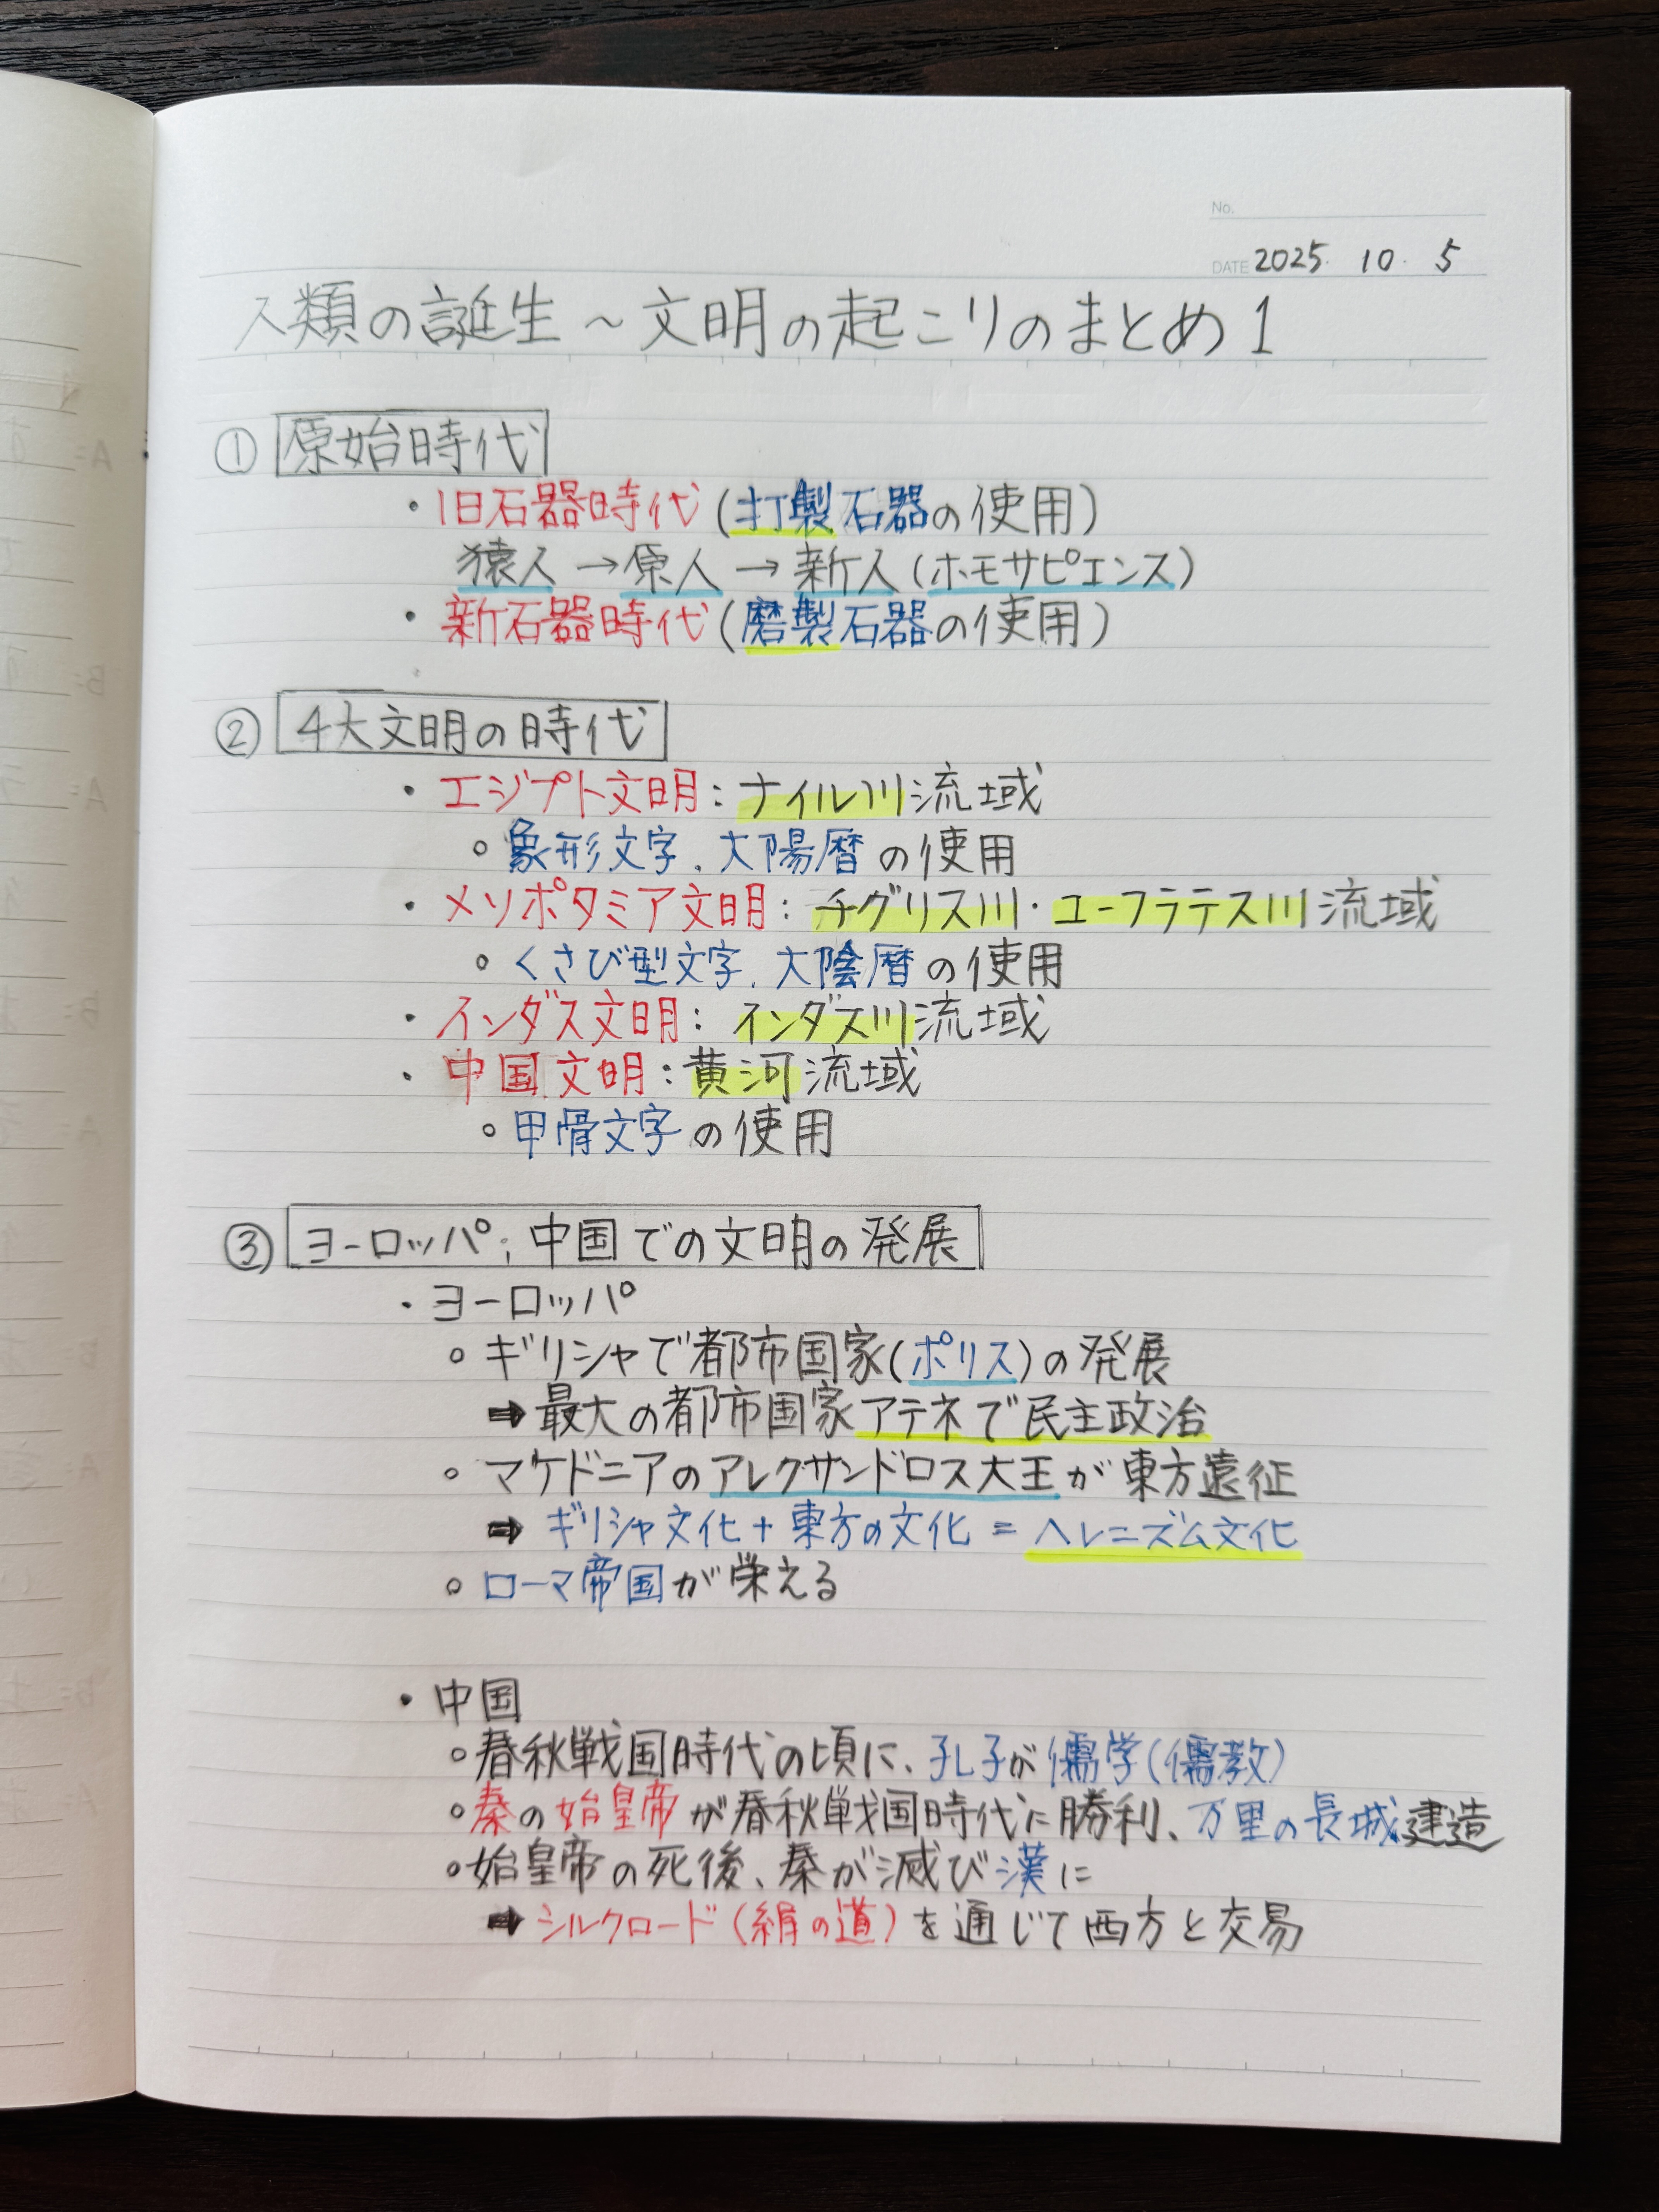 No.
DATE 2025. 10. 5
人類の誕生～文明の起こりのまとめ1
① 原始時代
・旧石器時代(打製石器の使用)
猿人→原人→新人(ホモサピエンス)
・新石器時代(磨製石器の使用)
② 4大文明の時代
・エジプト文明：ナイル川流域
○象形文字、太陽暦の使用
・メソポタミア文明：チグリス川・ユーフラテス川流域
○くさび型文字、太陰暦の使用
・インダス文明：インダス川流域
・中国文明：黄河流域
○甲骨文字の使用
③ ヨーロッパ、中国での文明の発展
・ヨーロッパ
○ギリシャで都市国家(ポリス)の発展
➡最大の都市国家アテネで民主政治
○マケドニアのアレクサンドロス大王が東方遠征
➡ギリシャ文化+東方の文化=ヘレニズム文化
○ローマ帝国が栄える
・中国
○春秋戦国時代の頃に、孔子が儒学(儒教)
○秦の始皇帝が春秋戦国時代に勝利、万里の長城建造
○始皇帝の死後、秦が滅び漢に
➡シルクロード(絹の道)を通じて西方と交易